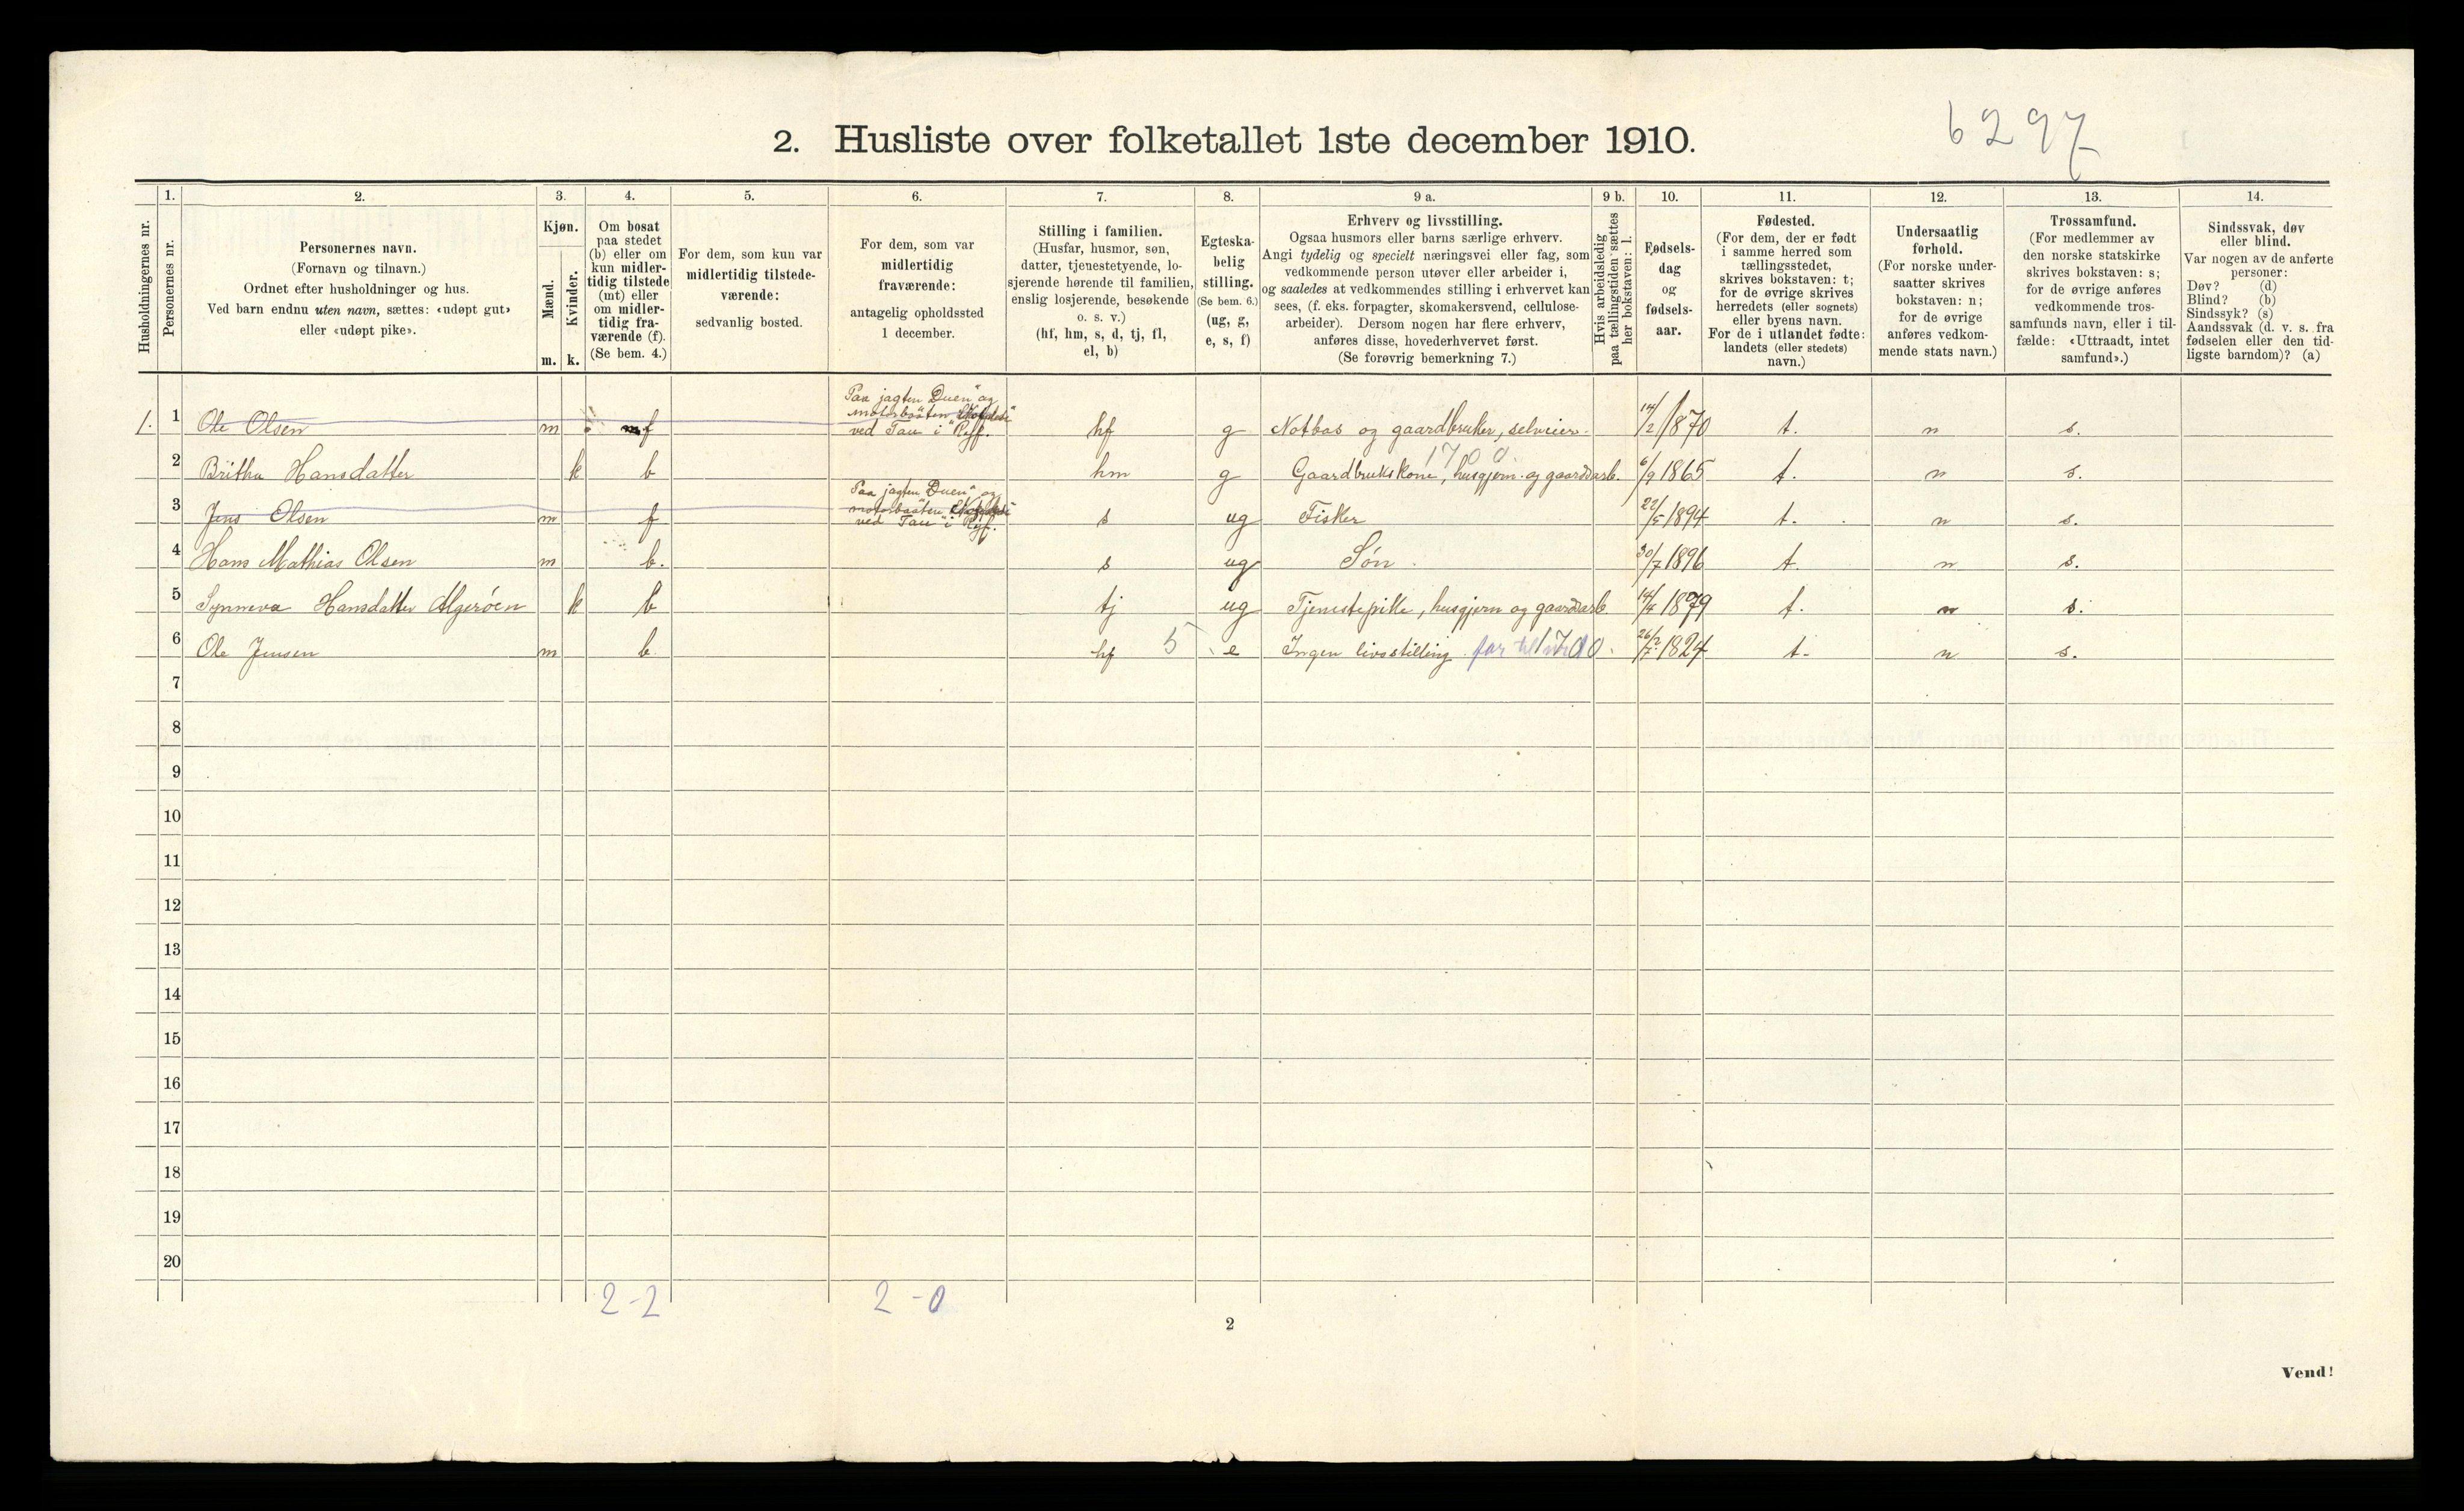 2. Husliste over folketallet 1ste december 1910.
6297
Husholdningernes nr.
1.
Personernes nr.
2.
Personernes navn.
(Fornavn og tilnavn.)
Ordnet efter husholdninger og hus.
Ved barn endnu uten navn, sættes: «udøpt gut»
eller «udøpt pike».
3.
Kjøn.
Mænd.
Kvinder.
m. k.
4.
Om bosat
paa stedet
(b) eller om
kun midler-
tidig tilstede
(mt) eller
om midler-
tidig fra-
værende (f).
(Se bem. 4.)
5.
For dem, som kun var
midlertidig tilstede-
værende:
sedvanlig bosted.
6.
For dem, som var
midlertidig
fraværende:
antagelig opholdssted
1 december.
7.
Stilling i familien.
(Husfar, husmor, søn,
datter, tjenestetyende, lo-
sjerende hørende til familien,
enslig losjerende, besøkende
o. s. v.)
(hf, hm, s, d, tj, fl,
el, b)
8.
Egteska-
belig
stilling.
(Se bem. 6.)
(ug, g,
e, s, f)
9 a.
Erhverv og livsstilling.
Ogsaa husmors eller barns særlige erhverv.
Angi tydelig og specielt næringsvei eller fag, som
vedkommende person utøver eller arbeider i,
og saaledes at vedkommendes stilling i erhvervet kan
sees, (f. eks. forpagter, skomakersvend, cellulose-
arbeider). Dersom nogen har flere erhverv,
anføres disse, hovederhvervet først.
(Se forøvrig bemerkning 7.)
9 b.
Hvis arbeidsledig
paa tællingstiden sættes
her bokstaven: l.
10.
Fødsels-
dag
og
fødsels-
aar.
11.
Fødested.
(For dem, der er født
i samme herred som
tællingsstedet,
skrives bokstaven: t;
for de øvrige skrives
herredets (eller sognets)
eller byens navn.
For de i utlandet fødte:
landets (eller stedets)
navn.)
12.
Undersaatlig
forhold.
(For norske under-
saatter skrives
bokstaven: n;
for de øvrige
anføres vedkom-
mende stats navn.)
13.
Trossamfund.
(For medlemmer av
den norske statskirke
skrives bokstaven: s;
for de øvrige anføres
vedkommende tros-
samfunds navn, eller i til-
fælde: «Uttraadt, intet
samfund».)
14.
Sindssvak, døv
eller blind.
Var nogen av de anførte
personer:
Døv? (d)
Blind? (b)
Sindssyk? (s)
Aandssvak (d. v. s. fra
fødselen eller den tid-
ligste barndom)? (a)
Paa jagten "Duen" og
motorbaaten
ved Tau i Ryf.
1. 1 Ole Olsen m f hf g Notbas og gaardbruker, selveier 14/2 1870 t. n s.
1700
2 Britha Hansdatter k b hm g Gaardbrukskone, husgjern. og gaardsarb. 6/9 1865 t. n s.
Paa jagten "Duen" og
motorbaaten
ved Tau i Ryf.
3 Jens Olsen m f s ug Fisker 22/5 1894 t. n s.
4 Hans Mathias Olsen m b. s ug Søn 30/7 1896 t. n s.
5 Synneva Hansdatter Algerøen k b tj ug Tjenestepike, husgjern og gaardsarb. 14/4 1879 t. n s.
6 Ole Jensen m b. hf 5 e Ingen livsstilling far til 1700 1824 t. n s.
7
8
9
10
11
12
13
14
15
16
17
18
19
20
2-2 2-0
2
Vend!